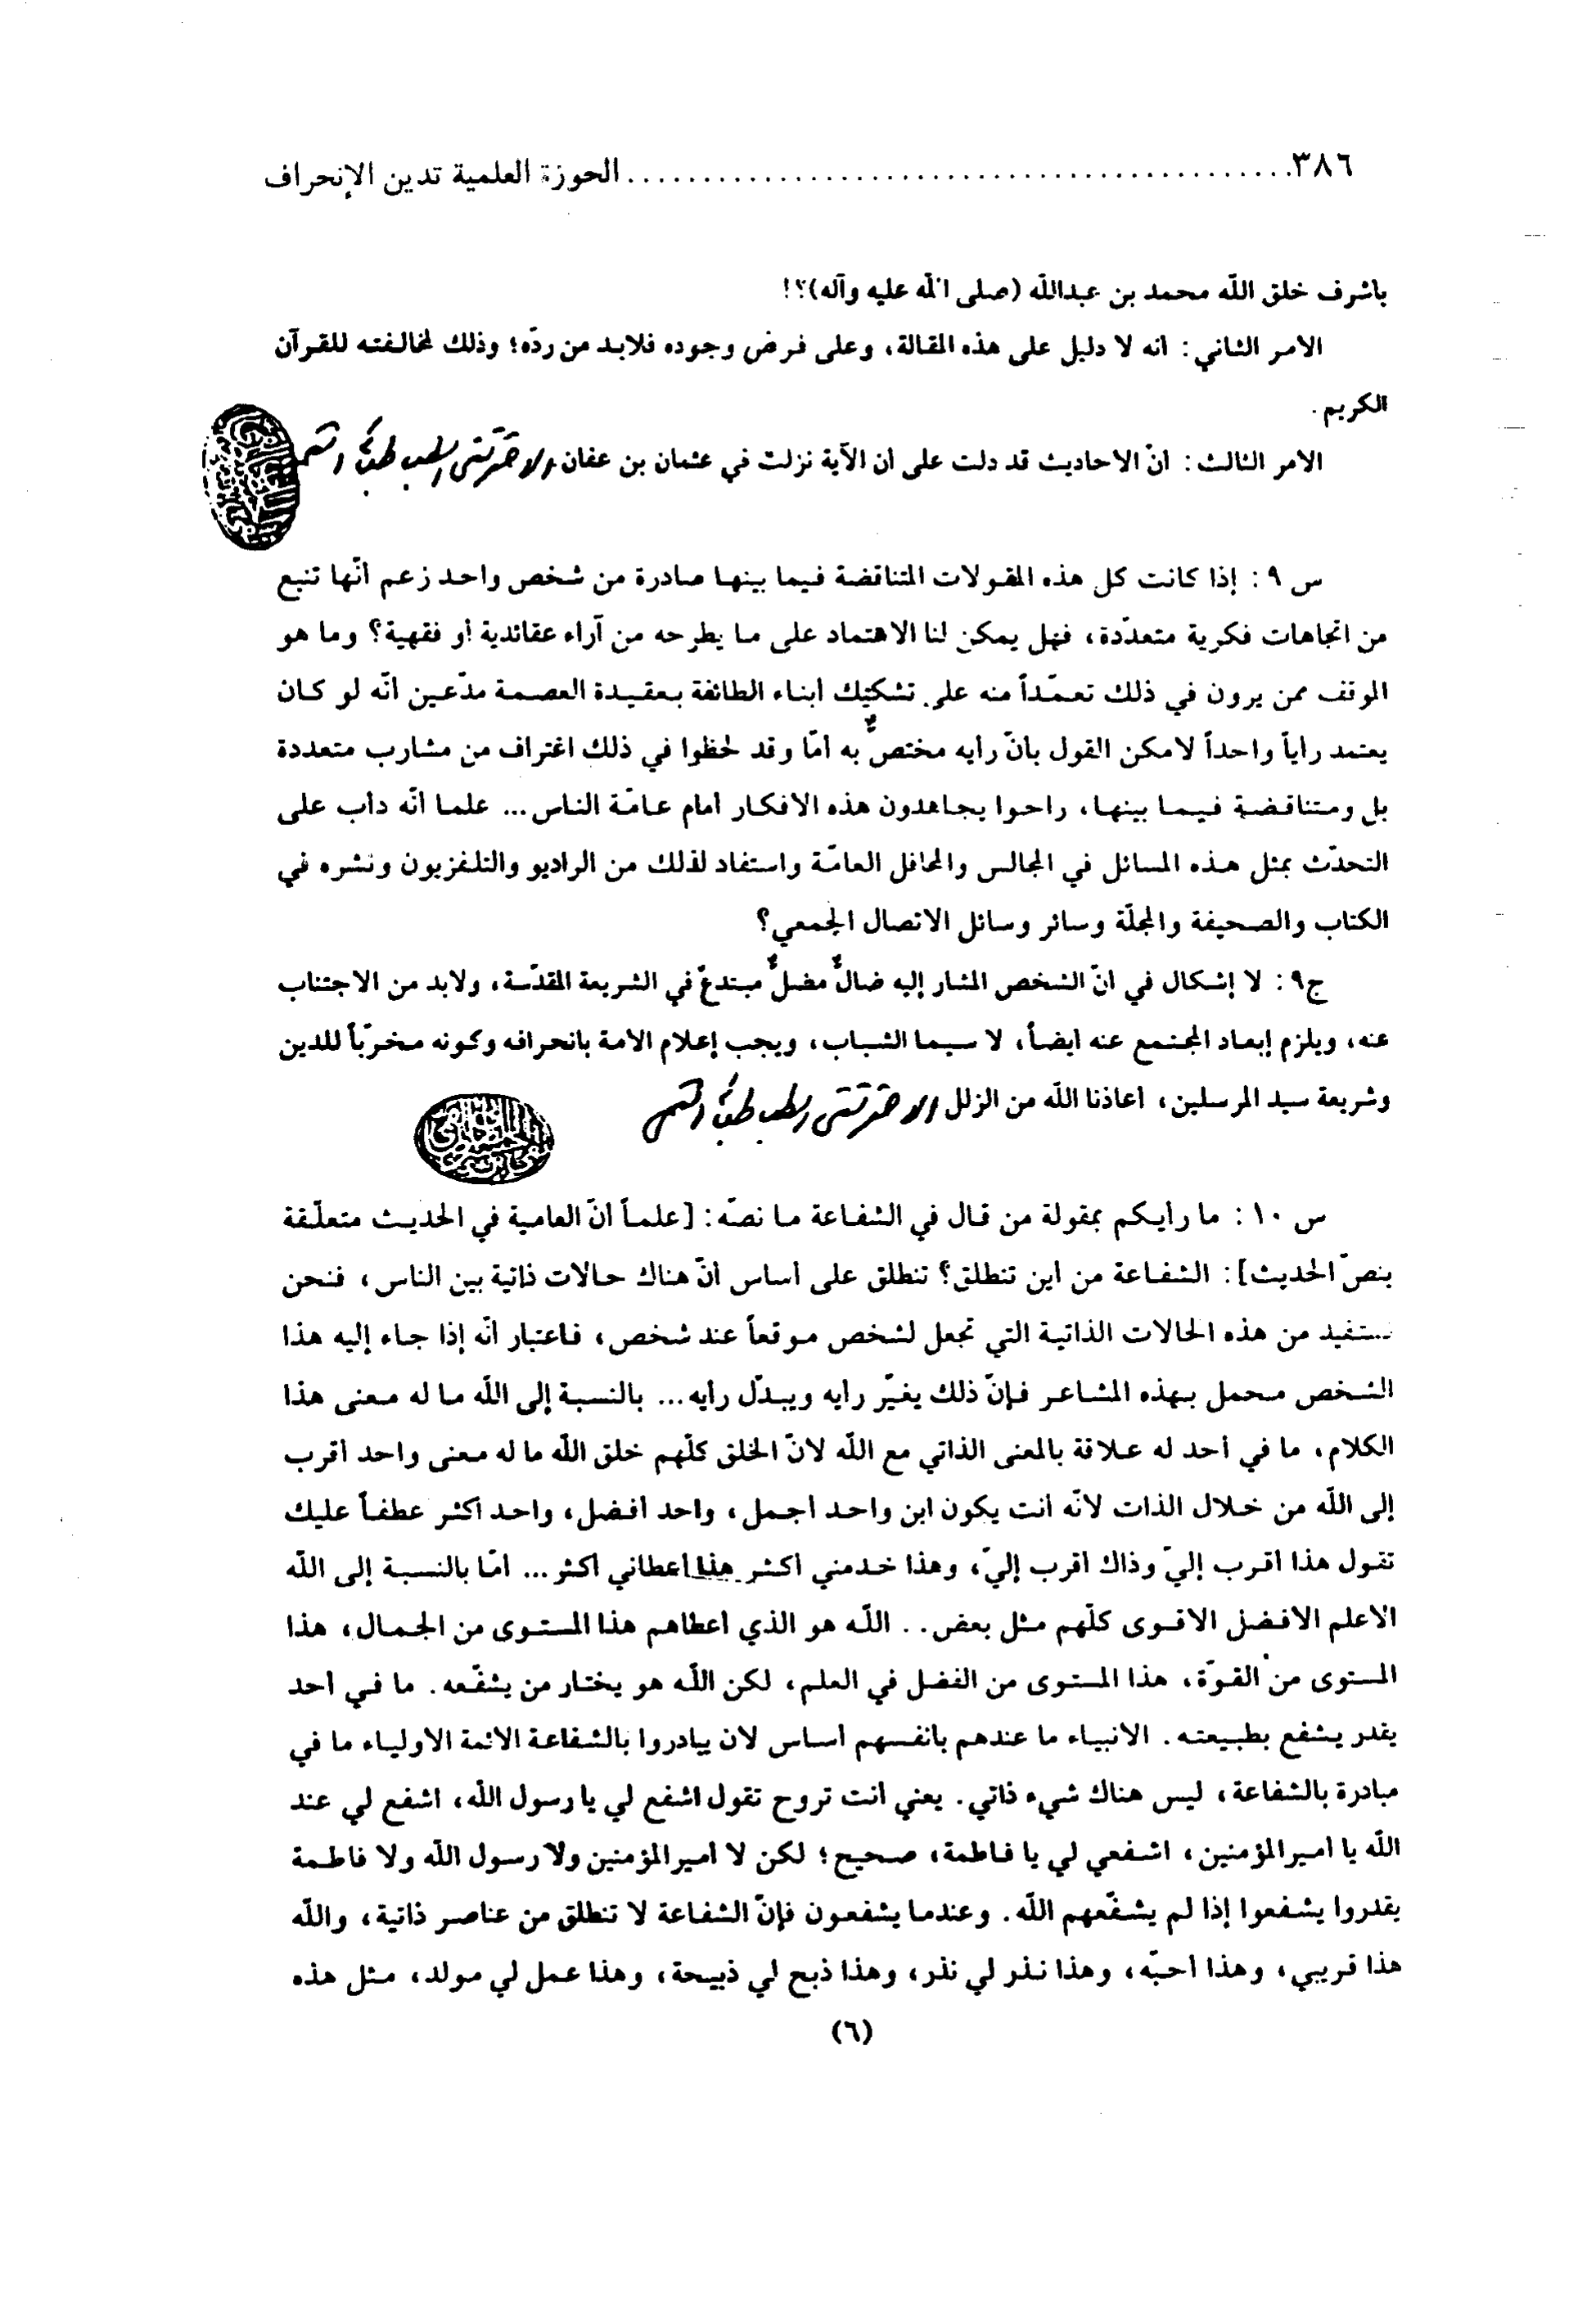 ٣٨٦ ............................................ الحوزة العلمية تدين الإنحراف
باشرف خلق اللّه محمد بن عبداللّه (صلى اللّه عليه وآله)؟!
الامر الثاني: انه لا دليل على هذه المقالة، وعلى فرض وجوده فلابد من ردّه؛ وذلك لمخالفته للقرآن
الكريم.
الامر الثالث: انّ الاحاديث قد دلت على ان الآية نزلت في عثمان بن عفان.
س ٩: إذا كانت كل هذه المقولات المتناقضة فيما بينها صادرة من شخص واحد زعم انّها تنبع
من اتجاهات فكرية متعدّدة، فهل يمكن لنا الاعتماد على ما يطرحه من آراء عقائدية أو فقهية؟ وما هو
الموقف ممن يرون في ذلك تعمّداً منه على تشكيك ابناء الطائفة بعقيدة العصمة مدّعين انّه لو كان
يعتمد راياً واحداً لامكن القول بانّ رأيه مختصٌ به امّا وقد لحظوا في ذلك اغتراف من مشارب متعددة
بل ومتناقضة فيما بينها، راحوا يجاهدون هذه الافكار امام عامّة الناس... علما انّه داب على
التحدّث بمثل هذه المسائل في المجالس والمحافل العامّة واستفاد لذلك من الراديو والتلفزيون ونشره في
الكتاب والصحيفة والمجلّة وسائر وسائل الاتصال الجمعي؟
ج٩: لا إشكال في انّ الشخص المشار إليه ضالٌ مضلٌ مبتدعٌ في الشريعة المقدّسة، ولابد من الاجتناب
عنه، ويلزم إبعاد المجتمع عنه ايضاً، لا سيما الشباب، ويجب إعلام الامة بانحرافه وكونه مخرّباً للدين
وشريعة سيد المرسلين، اعاذنا اللّه من الزلل
س ١٠: ما رايكم بمقولة من قال في الشفاعة ما نصّه: [علماً انّ العامية في الحديث متعلّقة
بنصّ الحديث]: الشفاعة من اين تنطلق؟ تنطلق على اساس انّ هناك حالات ذاتية بين الناس، فنحن
نستفيد من هذه الحالات الذاتية التي تجعل لشخص موقعاً عند شخص، فاعتبار انّه إذا جاء إليه هذا
الشخص محمل بهذه المشاعر فإنّ ذلك يغيّر رايه ويبدّل رأيه... بالنسبة إلى اللّه ما له معنى هذا
الكلام، ما في احد له علاقة بالمعنى الذاتي مع اللّه لانّ الخلق كلّهم خلق اللّه ما له معنى واحد اقرب
إلى اللّه من خلال الذات لانّه انت يكون ابن واحد اجمل، واحد افضل، واحد اكثر عطفاً عليك
تقول هذا اقرب إليّ وذاك اقرب إليّ، وهذا خدمني اكثر هذا اعطاني اكثر... امّا بالنسبة إلى اللّه
الاعلم الافضل الاقوى كلّهم مثل بعض.. اللّه هو الذي اعطاهم هذا المستوى من الجمال، هذا
المستوى من القوّة، هذا المستوى من الفضل في العلم، لكن اللّه هو يختار من يشفّعه. ما في احد
يقدر يشفع بطبيعته. الانبياء ما عندهم بانفسهم اساس لان يبادروا بالشفاعة الائمة الاولياء ما في
مبادرة بالشفاعة، ليس هناك شيء ذاتي. يعني انت تروح تقول اشفع لي يا رسول اللّه، اشفع لي عند
اللّه يا اميرالمؤمنين، اشفعي لي يا فاطمة، صحيح؛ لكن لا اميرالمؤمنين ولا رسول اللّه ولا فاطمة
يقدروا يشفعوا إذا لم يشفّعهم اللّه. وعندما يشفعون فإنّ الشفاعة لا تنطلق من عناصر ذاتية، واللّه
هذا قريبي، وهذا احبّه، وهذا نذر لي نذر، وهذا ذبح لي ذبيحة، وهذا عمل لي مولد، مثل هذه
(٦)